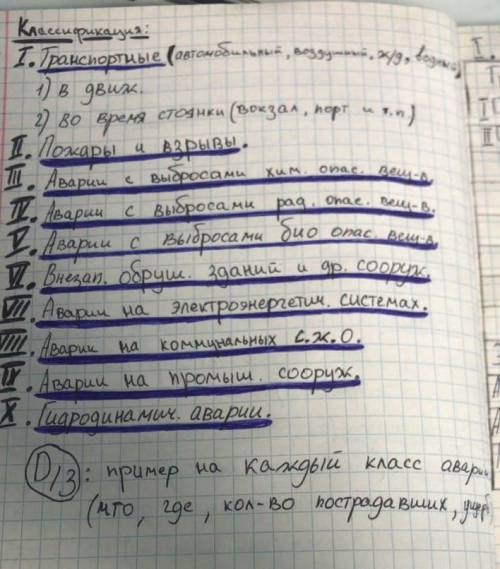 Классификация:
I. Транспортные (автомобильный, воздушный, ж/д, водный)
1) в движ.
2) во время стоянки (вокзал, порт и т.п)
II. Пожары и взрывы.
III. Аварии с выбросами хим. опас. вещ-в.
IV. Аварии с выбросами рад. опас. вещ-в.
V. Аварии с выбросами био опас. вещ-в.
VI. Внезап. обруш. зданий и др. сооруж.
VII. Аварии на электроэнергетич. системах.
VIII. Аварии на коммунальных с.ж.о.
IX. Аварии на промыш. сооруж.
X. Гидродинамич. аварии.
D/З: пример на каждый класс аварии
(что, где, кол-во пострадавших, ущерб